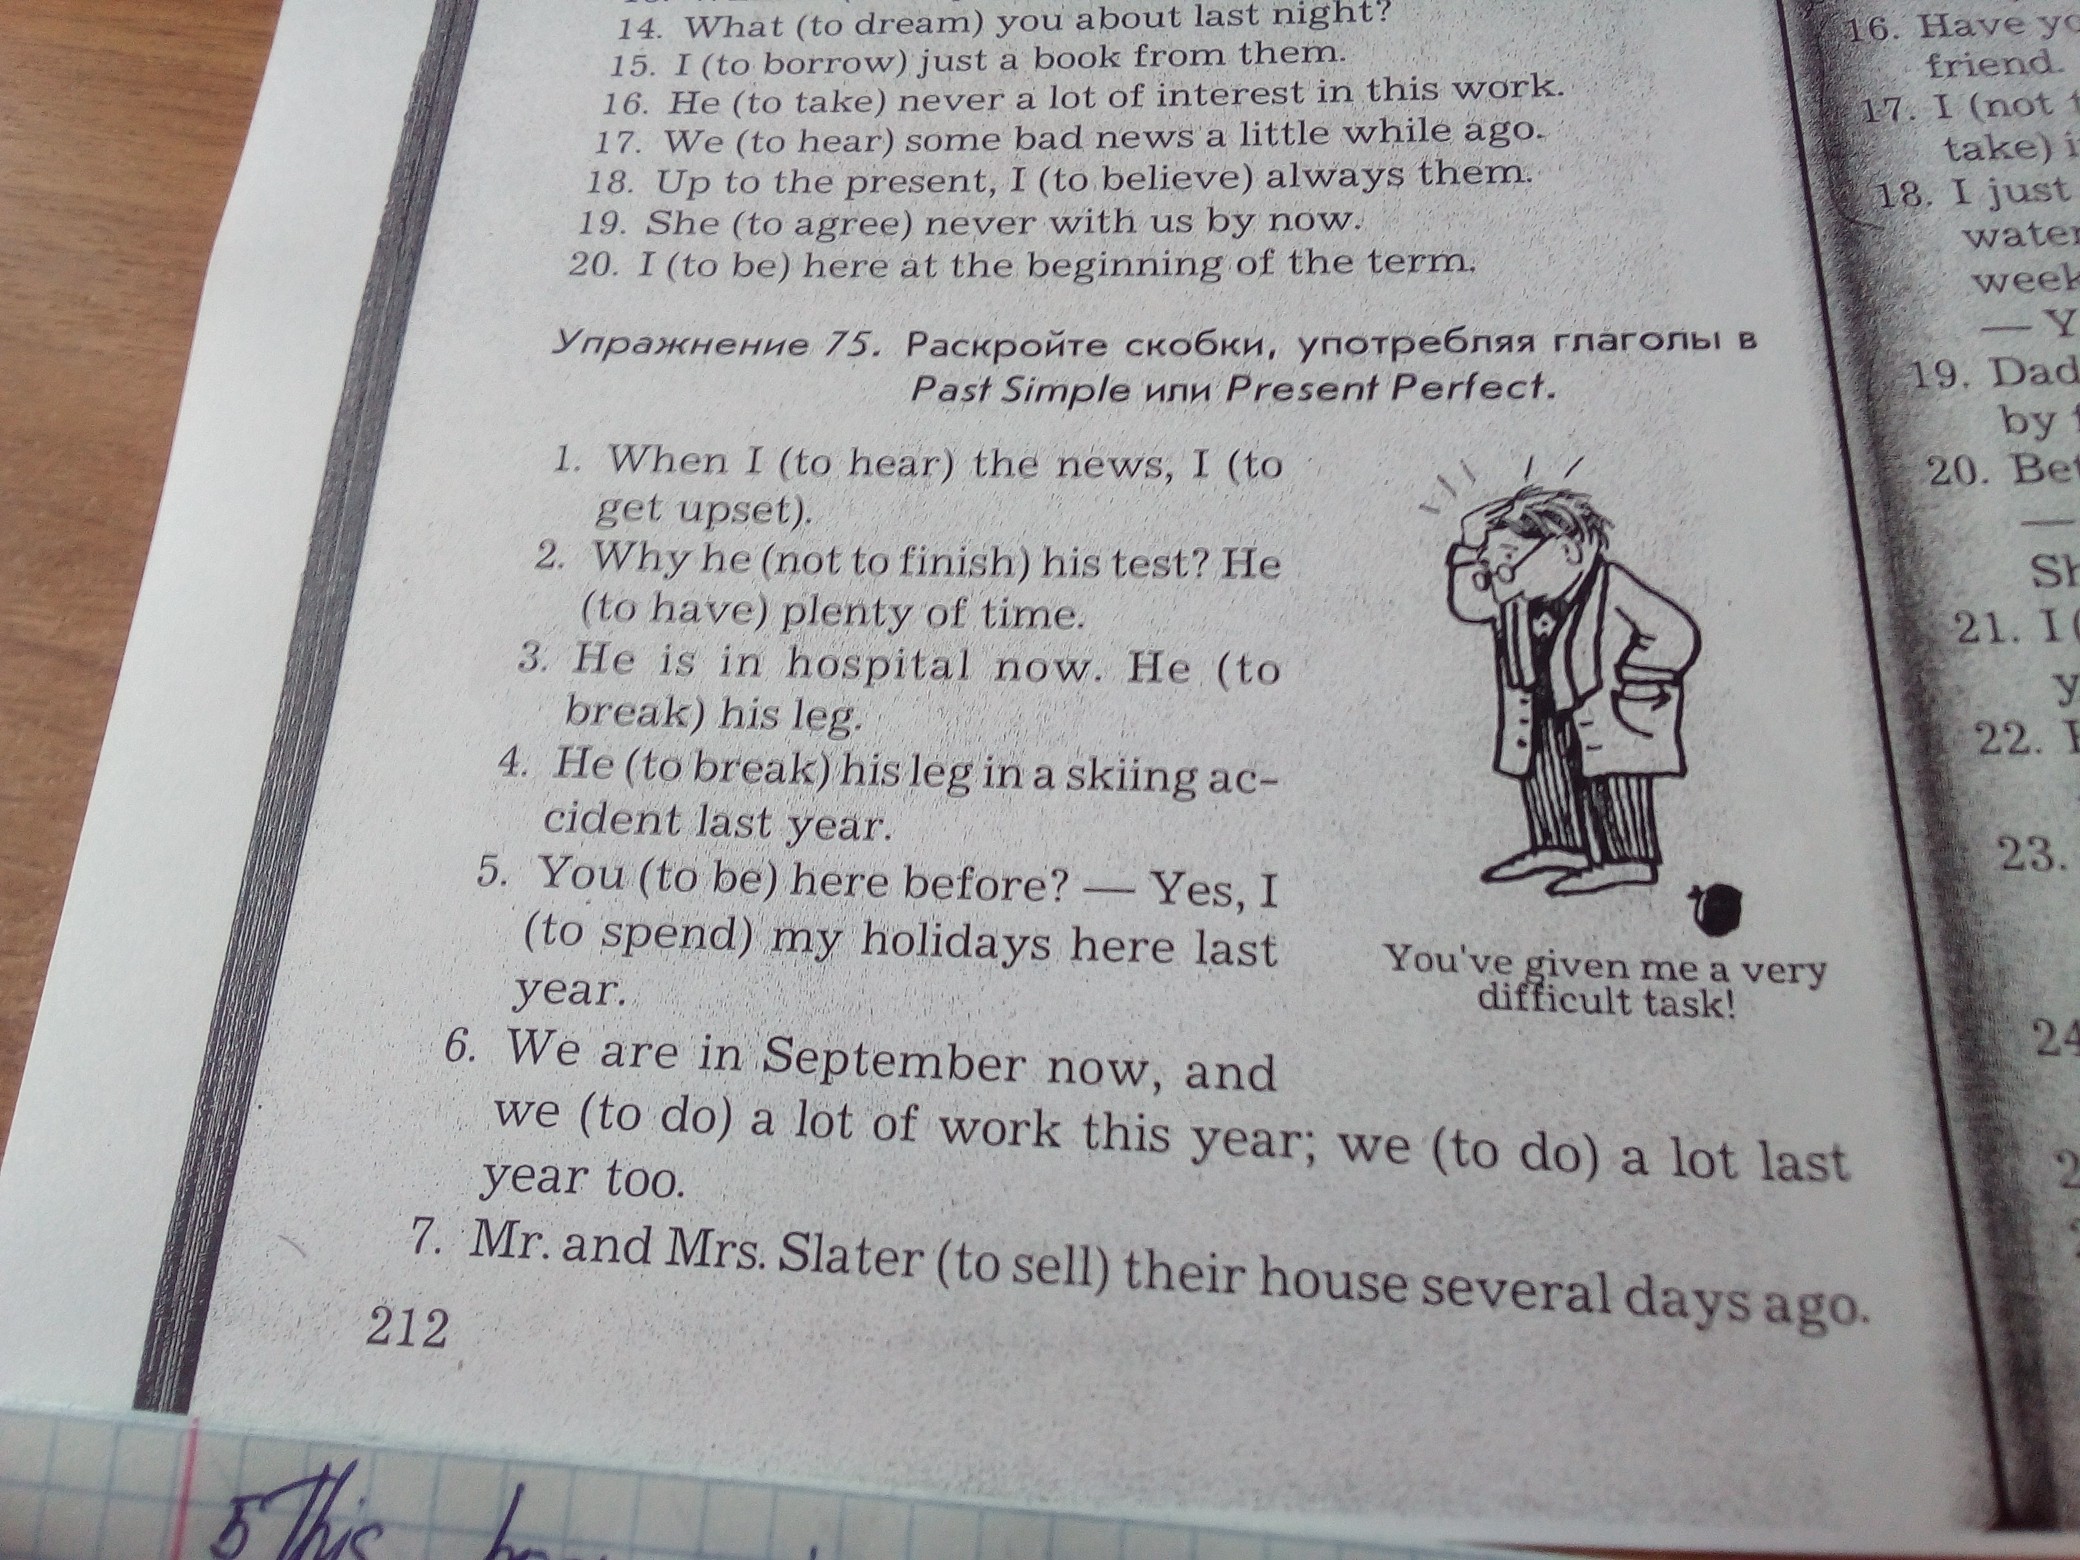 14. What (to dream) you about last night?
15. I (to borrow) just a book from them.
16. He (to take) never a lot of interest in this work.
17. We (to hear) some bad news a little while ago.
18. Up to the present, I (to believe) always them.
19. She (to agree) never with us by now.
20. I (to be) here at the beginning of the term.
Упражнение 75. Раскройте скобки, употребляя глаголы в
Past Simple или Present Perfect.
1. When I (to hear) the news, I (to
get upset).
2. Why he (not to finish) his test? He
(to have) plenty of time.
3. He is in hospital now. He (to
break) his leg.
4. He (to break) his leg in a skiing ac-
cident last year.
5. You (to be) here before? — Yes, I
(to spend) my holidays here last
year.
6. We are in September now, and
we (to do) a lot of work this year; we (to do) a lot last
year too.
7. Mr. and Mrs. Slater (to sell) their house several days ago.
You've given me a very
difficult task!
212
16. Have
friend.
17. I (not
take)
18. I just
week
— Y
19. Dad
by
20.
—
21. I (
22.
23.
24
5 This